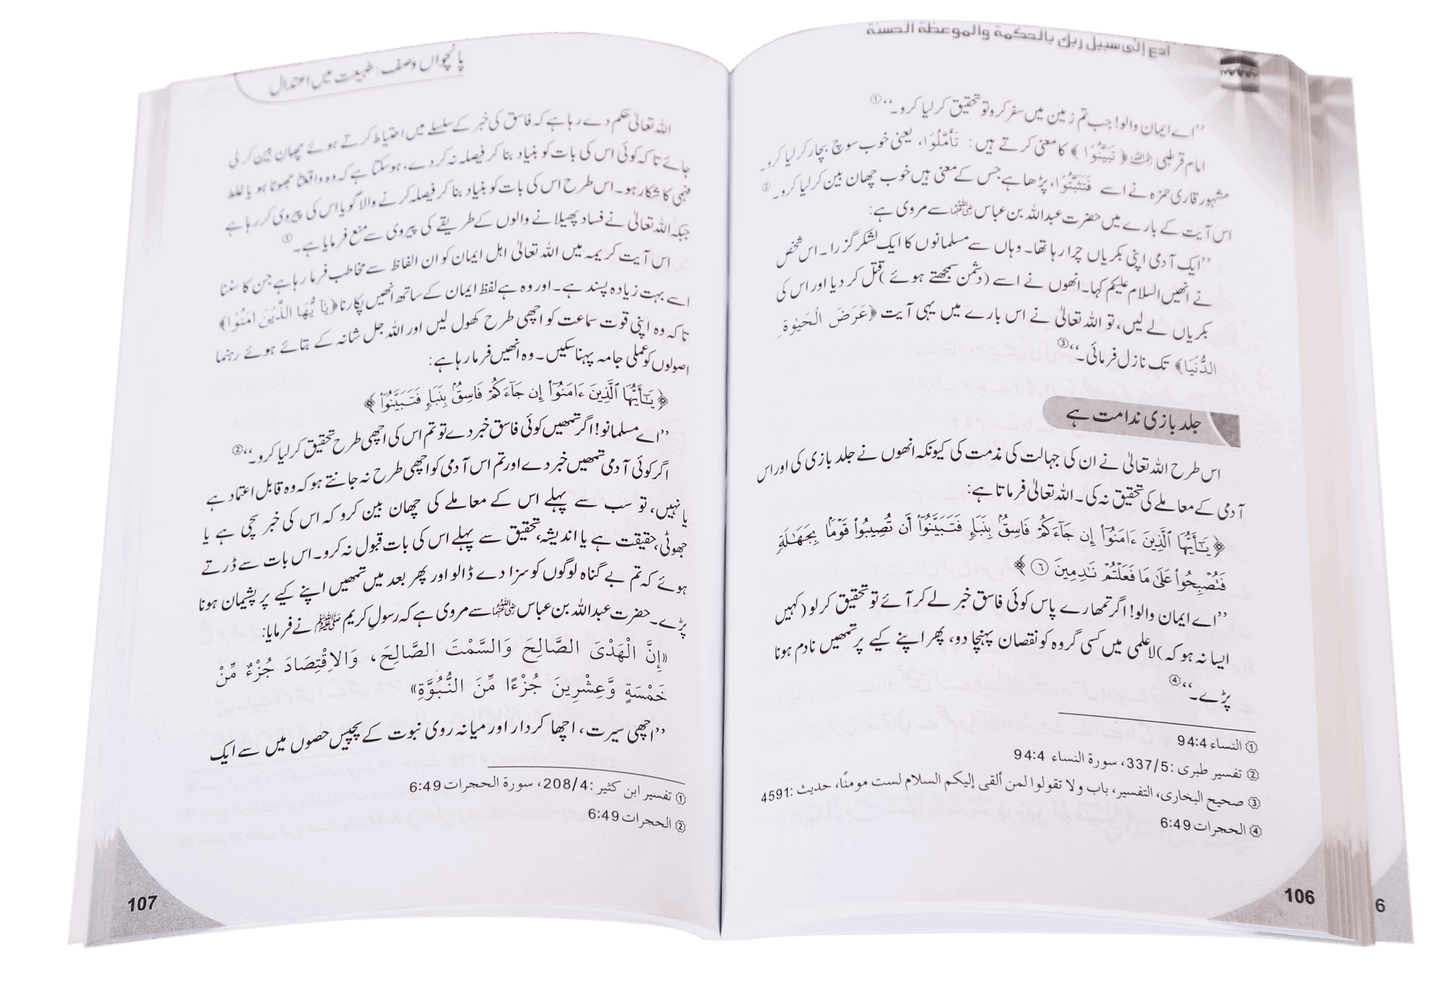 ادع إلى سبيل ربك بالحكمة والموعظة الحسنة
”اے ایمان والو! جب تم زمین میں سفر کرو تو تحقیق کر لیا کرو۔“①
امام قرطبی رحمہ اللہ ﴿تَبَيَّنُوْا﴾ کا معنی کرتے ہیں: تَأَمَّلُوْا، یعنی خوب سوچ بچار کر لیا کرو۔
مشہور قاری حمزہ نے اسے فَتَثَبَّتُوْا، پڑھا ہے جس کے معنی ہیں خوب چھان بین کر لیا کرو۔②
اس آیت کے بارے میں حضرت عبداللہ بن عباس رضی اللہ عنہما سے مروی ہے:
”ایک آدمی اپنی بکریاں چرا رہا تھا۔ وہاں سے مسلمانوں کا ایک لشکر گزرا۔ اس شخص
نے انھیں السلام علیکم کہا۔ انھوں نے اسے (دشمن سمجھتے ہوئے) قتل کر دیا اور اس کی
بکریاں لے لیں، تو اللہ تعالیٰ نے اس بارے میں یہی آیت ﴿عَرَضَ الْحَيٰوةِ
الدُّنْيَا﴾ تک نازل فرمائی۔“③
جلد بازی ندامت ہے
اس طرح اللہ تعالیٰ نے ان کی جہالت کی مذمت کی کیونکہ انھوں نے جلد بازی کی اور اس
آدمی کے معاملے کی تحقیق نہ کی۔ اللہ تعالیٰ فرماتا ہے:
﴿يَٰٓأَيُّهَا ٱلَّذِينَ ءَامَنُوٓا۟ إِن جَآءَكُمْ فَاسِقٌۢ بِنَبَإٍ فَتَبَيَّنُوٓا۟ أَن تُصِيبُوا۟ قَوْمًۢا بِجَهَٰلَةٍ
فَتُصْبِحُوا۟ عَلَىٰ مَا فَعَلْتُمْ نَٰدِمِينَ ٦﴾
”اے ایمان والو! اگر تمھارے پاس کوئی فاسق خبر لے کر آئے تو تحقیق کر لو (کہیں
ایسا نہ ہو کہ) لاعلمی میں کسی گروہ کو نقصان پہنچا دو، پھر اپنے کیے پر تمھیں نادم ہونا
پڑے۔“④
① النساء 94:4
② تفسير طبرى: 337/5، سورة النساء 94:4
③ صحيح البخارى، التفسير، باب ولا تقولوا لمن ألقى إليكم السلام لست مومنًا، حديث: 4591
④ الحجرات 6:49
106
6
پانچواں وصف: طبیعت میں اعتدال
اللہ تعالیٰ حکم دے رہا ہے کہ فاسق کی خبر کے سلسلے میں احتیاط کرتے ہوئے چھان بین کر لی
جائے تاکہ کوئی اس کی بات کو بنیاد بنا کر فیصلہ نہ کر دے، ہوسکتا ہے کہ وہ واقعتًا جھوٹا ہو یا غلط
فہمی کا شکار ہو۔ اس طرح اس کی بات کو بنیاد بنا کر فیصلہ کرنے والا گویا اس کی پیروی کر رہا ہے
جبکہ اللہ تعالیٰ نے فساد پھیلانے والوں کے طریقے کی پیروی سے منع فرمایا ہے۔①
اس آیت کریمہ میں اللہ تعالیٰ اہل ایمان کو ان الفاظ سے مخاطب فرما رہا ہے جن کا سننا
اسے بہت زیادہ پسند ہے۔ اور وہ ہے لفظ ایمان کے ساتھ انھیں پکارنا ﴿يٰۤاَيُّهَا الَّذِيْنَ اٰمَنُوْا﴾
تاکہ وہ اپنی قوت سماعت کو اچھی طرح کھول لیں اور اللہ جل شانہ کے بتائے ہوئے رہنما
اصولوں کو عملی جامہ پہنا سکیں۔ وہ انھیں فرما رہا ہے:
﴿يَٰٓأَيُّهَا ٱلَّذِينَ ءَامَنُوٓا۟ إِن جَآءَكُمْ فَاسِقٌۢ بِنَبَإٍ فَتَبَيَّنُوٓا۟﴾
”اے مسلمانو! اگر تمھیں کوئی فاسق خبر دے تو تم اس کی اچھی طرح تحقیق کر لیا کرو۔“②
اگر کوئی آدمی تمھیں خبر دے اور تم اس آدمی کو اچھی طرح نہ جانتے ہو کہ وہ قابل اعتماد ہے
یا نہیں، تو سب سے پہلے اس کے معاملے کی چھان بین کرو کہ اس کی خبر سچی ہے یا
جھوٹی، حقیقت ہے یا اندیشہ، تحقیق سے پہلے اس کی بات قبول نہ کرو۔ اس بات سے ڈرتے
ہوئے کہ تم بے گناہ لوگوں کو سزا دے ڈالو اور پھر بعد میں تمھیں اپنے کیے پر پشیمان ہونا
پڑے۔ حضرت عبداللہ بن عباس رضی اللہ عنہما سے مروی ہے کہ رسول کریم ﷺ نے فرمایا:
«إِنَّ الْهَدْىَ الصَّالِحَ وَالسَّمْتَ الصَّالِحَ، وَالاِقْتِصَادَ جُزْءٌ مِّنْ
خَمْسَةٍ وَّعِشْرِينَ جُزْءًا مِّنَ النُّبُوَّةِ»
”اچھی سیرت، اچھا کردار اور میانہ روی نبوت کے پچیس حصوں میں سے ایک
① تفسير ابن كثير: 208/4، سورة الحجرات 6:49
② الحجرات 6:49
107